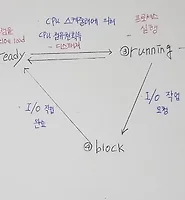 CPU 스케줄러에 의해
CPU 점유권 획득
- 디스패치
프로세스
실행
ready
③running
I/O 작업
완료
I/O 작업
요청
④block